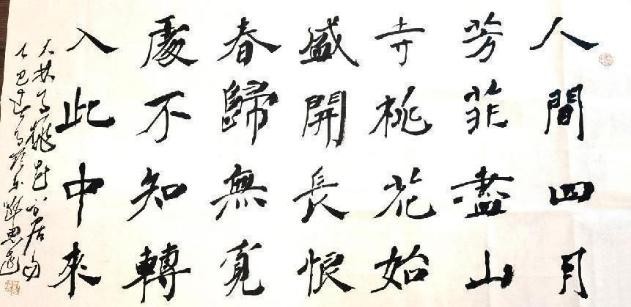 人間四月
芳菲盡山
寺桃花始
盛開長恨
春歸無覓
處不知轉
入此中來
大林寺桃花白居易
乙巳